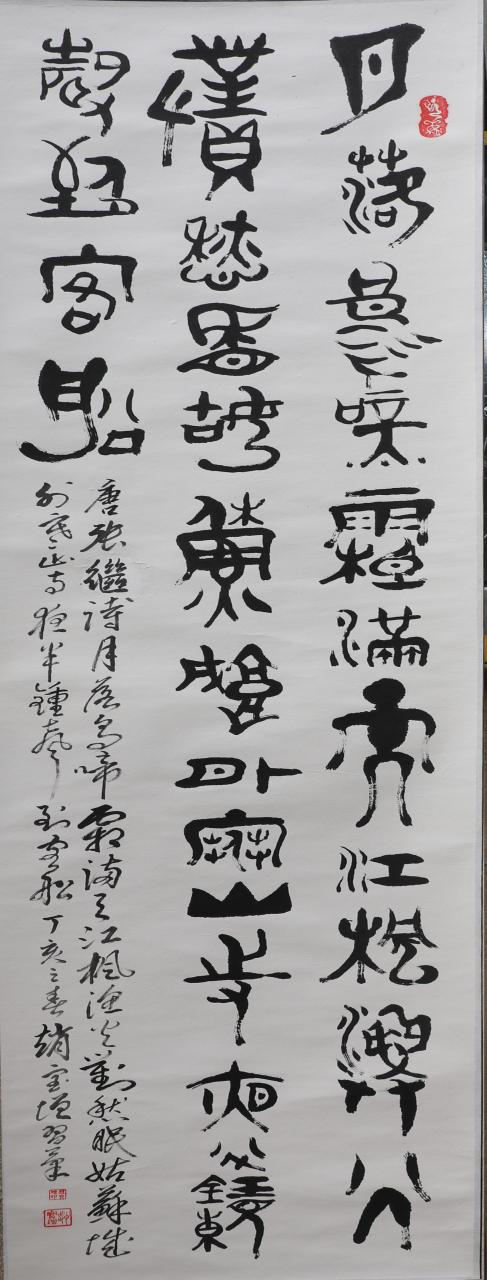 月落烏啼霜滿天江楓漁火
對愁眠姑蘇城外寒山寺夜半鐘
聲到客船
唐張繼詩月落烏啼霜滿天江楓漁火對愁眠姑蘇城
外寒山寺夜半鐘聲到客船丁亥之春趙寶增習篆